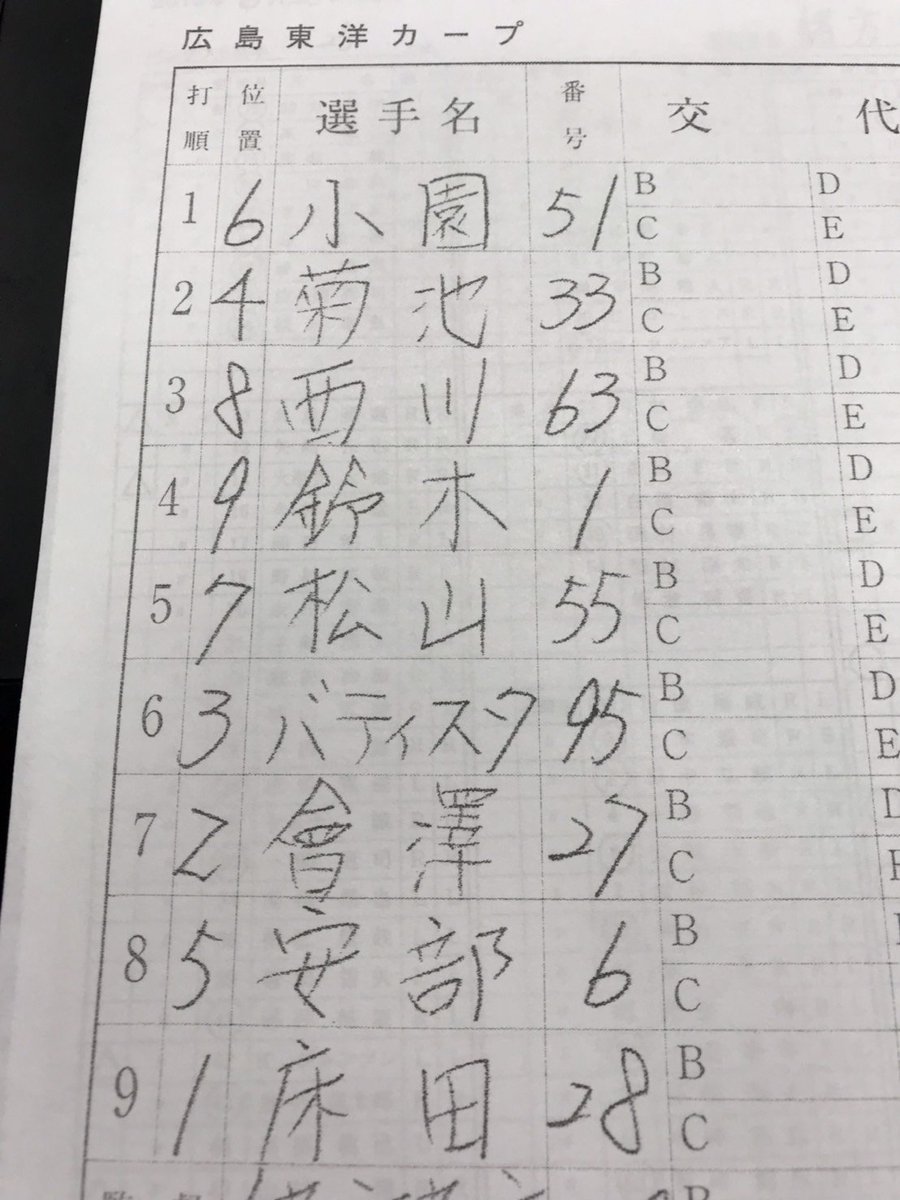 広島東洋カープ
打順 位置 選手名 番号 交代
1 6 小園 51 B D
C E
2 4 菊池 33 B D
C E
3 8 西川 63 B D
C E
4 9 鈴木 1 B D
C E
5 7 松山 55 B D
C E
6 3 バティスタ 95 B D
C E
7 2 會澤 27 B D
C E
8 5 安部 6 B
C
9 1 床田 28 B
C
B